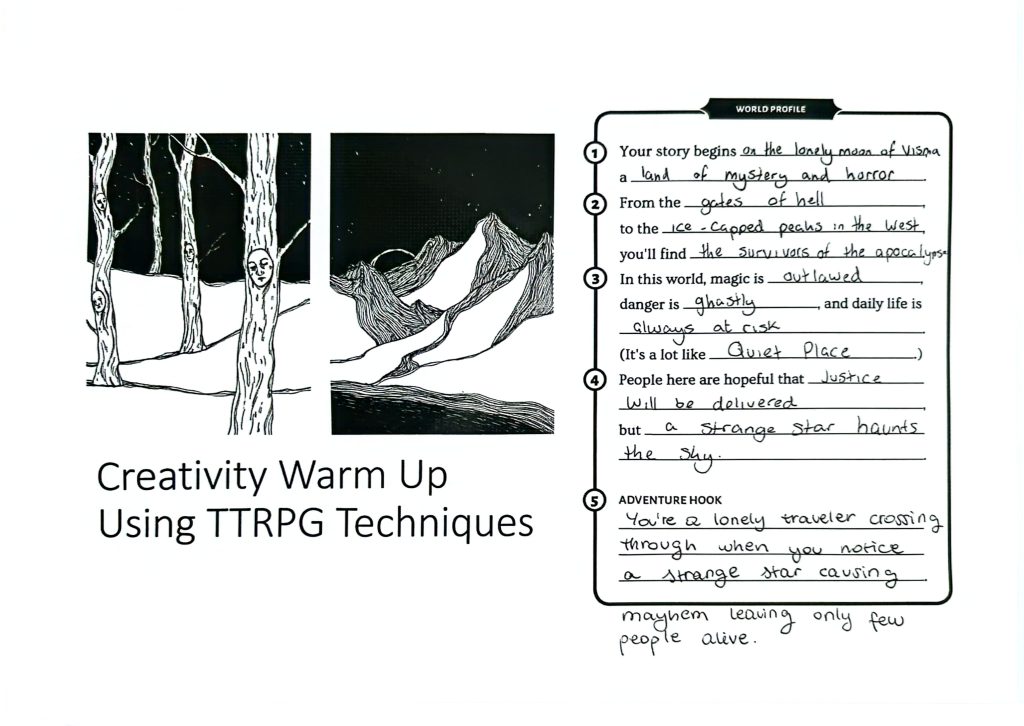 Creativity Warm Up
Using TTRPG Techniques
WORLD PROFILE
1 Your story begins on the lonely moon of Visma
a land of mystery and horror.
2 From the gates of hell
to the ice-capped peaks in the West,
you'll find the survivors of the apocalypse
3 In this world, magic is outlawed,
danger is ghastly, and daily life is
always at risk
(It's a lot like Quiet Place.)
4 People here are hopeful that justice
will be delivered,
but a strange star haunts
the sky.
5 ADVENTURE HOOK
You're a lonely traveler crossing
through when you notice
a strange star causing
mayhem leaving only few
people alive.